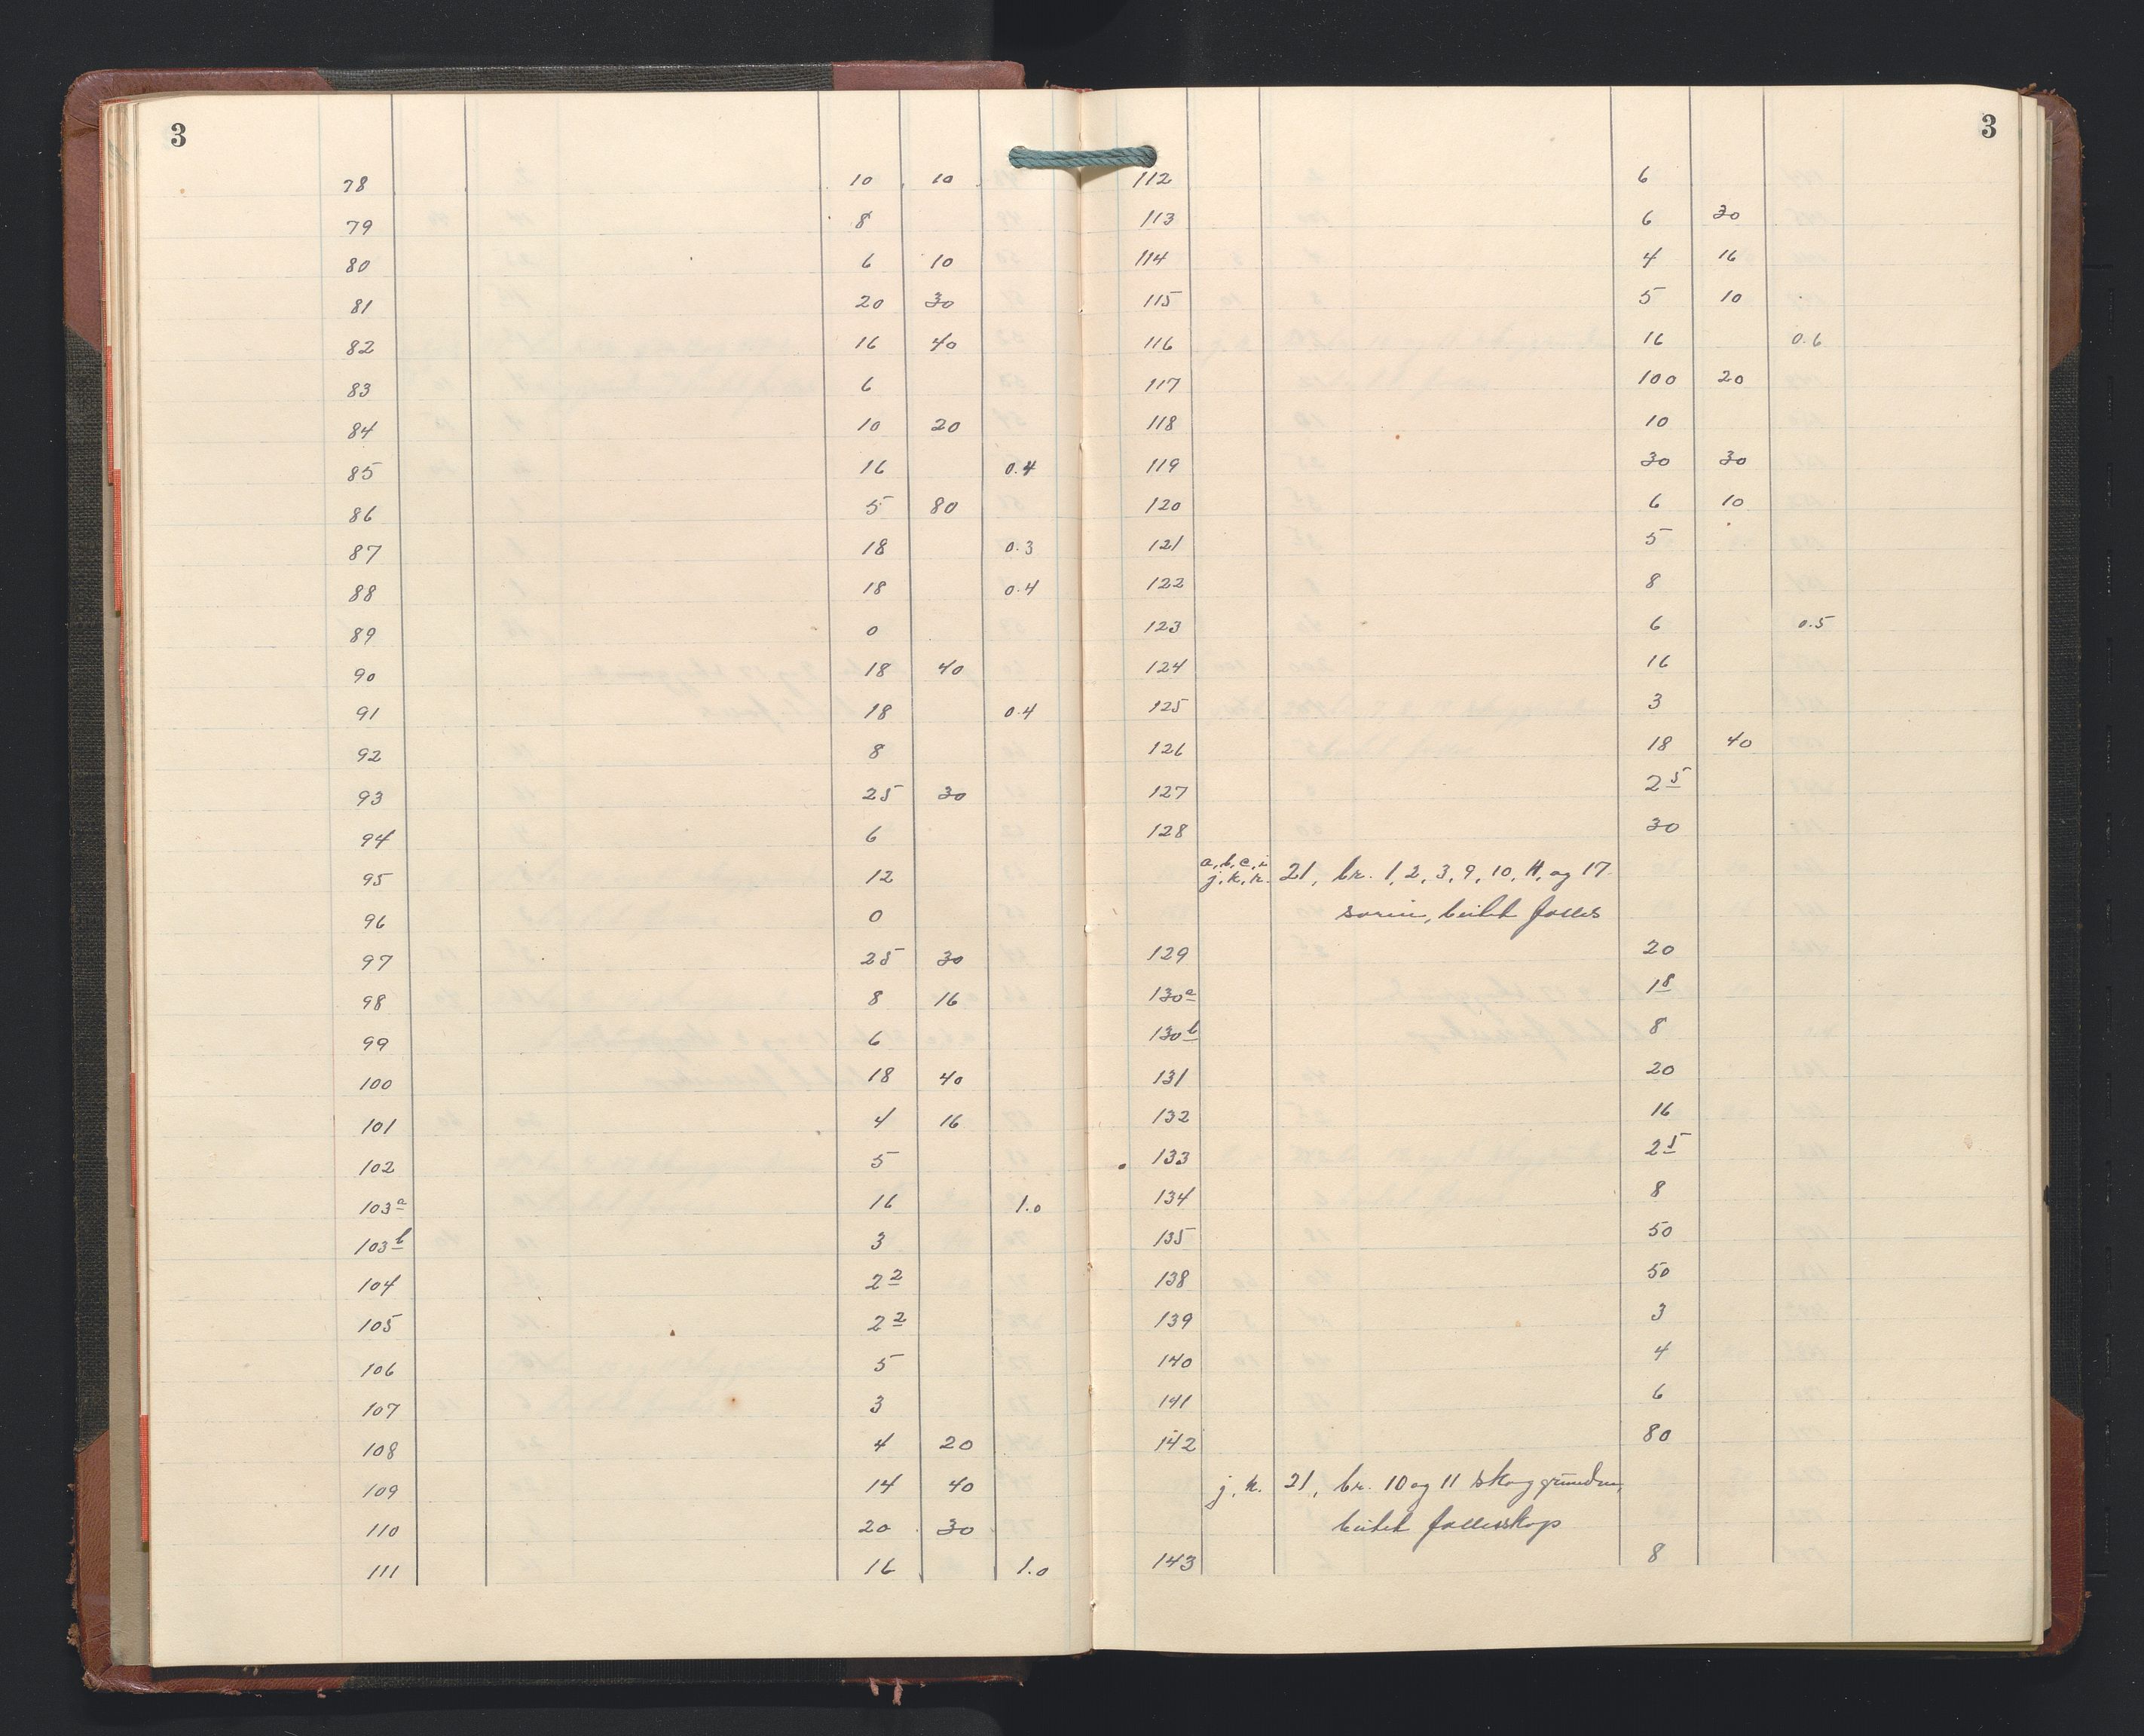 3
78 10 10
79 8
80 6 10
81 20 30
82 16 40
83 6
84 10 20
85 16 0.4
86 5 80
87 18 0.3
88 18 0.4
89 0
90 18 40
91 18 0.4
92 8
93 25 30
94 6
95 12
96 0
97 25 30
98 8 16
99 6
100 18 40
101 4 16
102 5
103a 16 1.0
103b 3
104 2 2
105 2 2
106 5
107 3
108 4 20
109 14 40
110 20 30
111 16 1.0
3
112 6
113 6 30
114 4 16
115 5 10
116 16 0.6
117 100 20
118 10
119 30 30
120 6 10
121 5
122 8
123 6 0.5
124 16
125 3
126 18 40
127 2 5
128 30
a, b, c, i
j, k, r. 21, br. 1, 2, 3, 9, 10, 11, og 17
beitet felles
129 20
130a 1 8
130b 8
131 20
132 16
133 2 5
134 8
135 50
138 50
139 3
140 4
141 6
142 80
j, k. 21, br. 10 og 11 skoggrunden,
beitet fellesskap
143 8